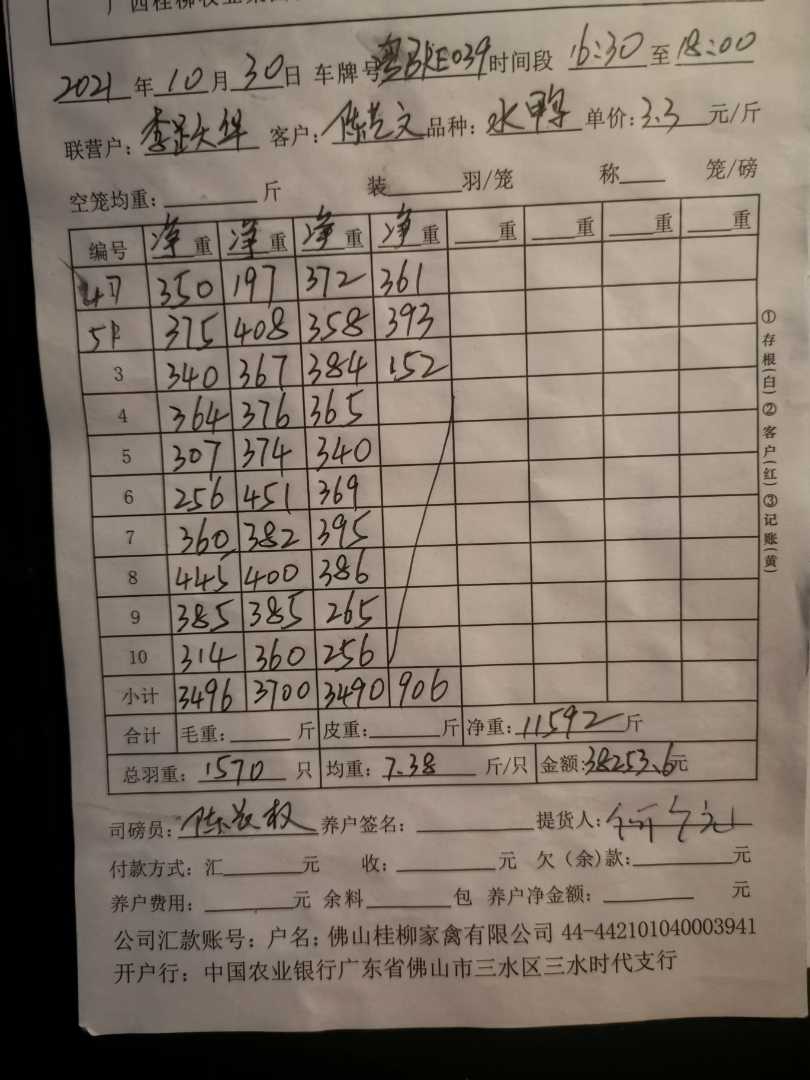 2021年10月30日 车牌号 E039 时间段 16:30至18:00
联营户: 客户:陈 文 品种:水鸭 单价:3.3元/斤
空笼均重: 斤 装 羽/笼 称 笼/磅
编号 净重 净重 净重 净重 重 重 重 重
350 197 372 361
375 408 358 393
3 340 367 384 152
4 364 376 365
5 307 374 340
6 256 451 369
7 360 382 395
8 445 400 386
9 385 385 265
10 314 360 256
小计 3496 3700 3490 906
合计 毛重: 斤 皮重: 斤 净重:11592斤
总羽重:1570只 均重:7.38斤/只 金额:38253.6元
司磅员:陈 权 养户签名: 提货人:
付款方式:汇 元 收: 元 欠(余)款: 元
养户费用: 元 余料 包 养户净金额: 元
公司汇款账号:户名:佛山桂柳家禽有限公司 44-442101040003941
开户行:中国农业银行广东省佛山市三水区三水时代支行
①存根(白)②客户(红)③记账(黄)